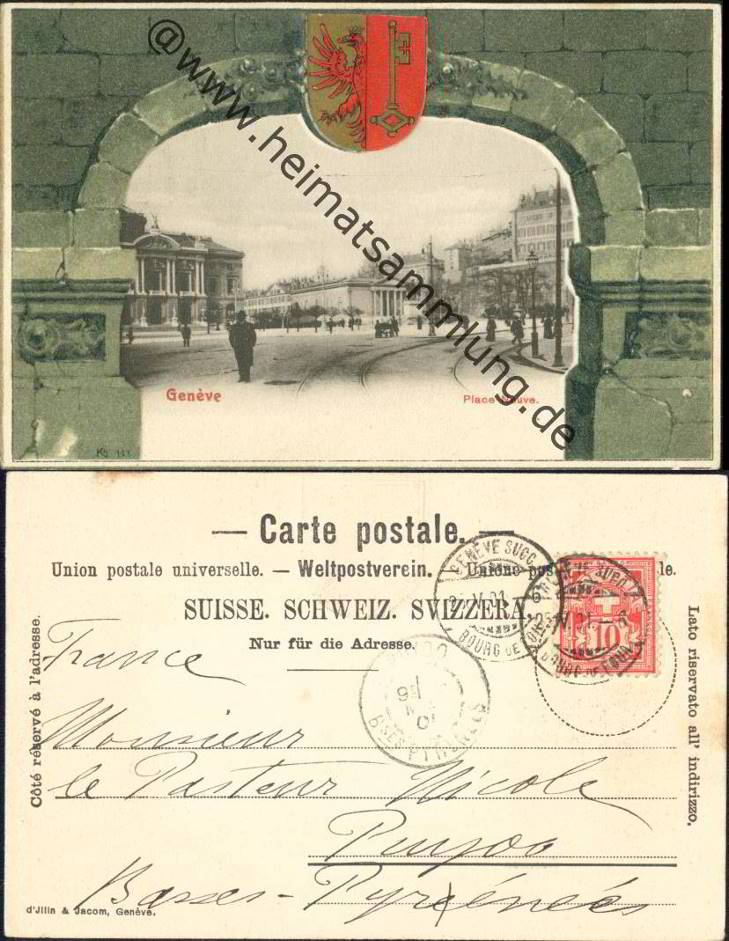 @www.heimatsammlung.de
Genève
Place Neuve.
— Carte postale. —
Union postale universelle. — Weltpostverein. — Unione postale
SUISSE. SCHWEIZ. SVIZZERA.
Nur für die Adresse.
Côté réservé à l'adresse.
Lato riservato all' indirizzo.
GENÈVE SUCC.
BOURG DE FOUR
10
BSES PYRÉNÉES
France
Monsieur
le Pasteur Nicole
Puyoo
Basses-Pyrénées
d'Jllin & Jacom, Genève.